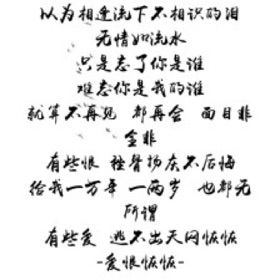 以为相逢流下不相识的泪
无情如流水
只是忘了你是谁
难忘你是我的谁
就算不再见 都再会 面目非
全非
有些恨 挫骨扬灰不后悔
给我一万年 一两岁 也都无
所谓
有些爱 逃不出天网恢恢
-爱恨恢恢-